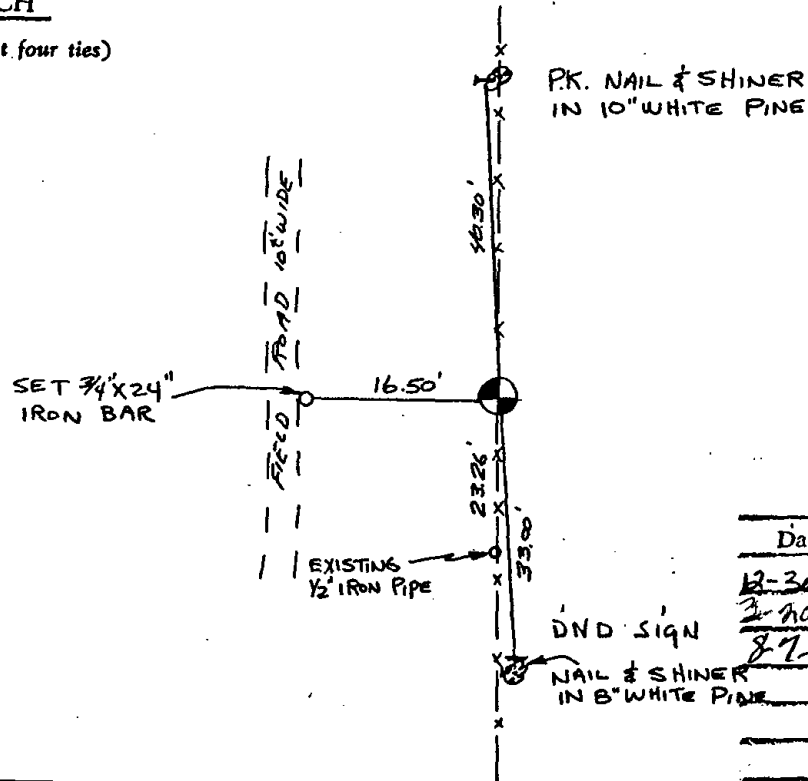 t four ties)
P.K. NAIL & SHINER
IN 10" WHITE PINE
FIELD ROAD 10'± WIDE
SET 3/4" X 24"
IRON BAR
16.50'
23.26'
EXISTING
1/2" IRON PIPE
DND SIGN
NAIL & SHINER
IN 8" WHITE PINE
Da